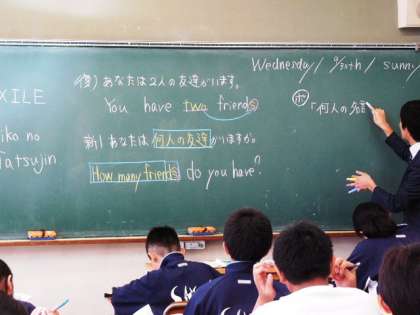 Wednesday / 9/30th / sunn
XILE
iko no
atsujin
(復) あなたは2人の友達がいます。
You have two friend(s)
新) あなたは何人の友達がいますか。
How many friends do you have?
ポ 「何人の名詞